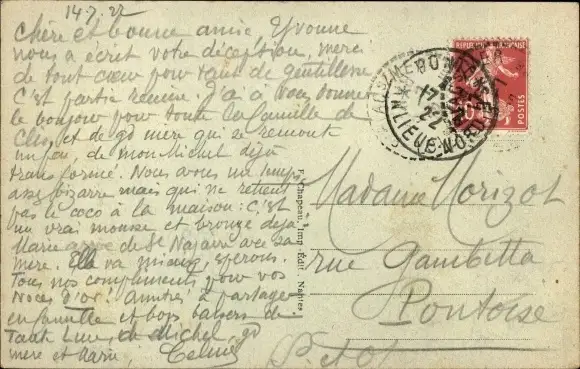 14-7-22
Chère et bonne amie, Yvonne
nous a écrit votre déception, merci
de tout cœur pour tant de gentillesse
C'est partie remise, J'ai à vous donner
le bonjour pour toute la famille de
et de gd mère qui se remont
un peu, de mon Michel déjà
transformé. Nous avons un temps
assez bizarre mais qui ne retient
pas le coco à la maison: C'est
un vrai mousse et bronzé déjà
Marie de St Nazaire avec sa
mère. Elle va mieux, espérons.
Tous nos compliments pour vos
Noces d'or! Amitiés à partager
en famille et bons baisers de
Tante Line, de Michel, gd
mère et Marie,
REPUBLIQUE FRANCAISE
POSTES
F. Chapeau, Imp.-Edit., Nantes
Madame Morizot
rue Gambetta
Pontoise
S. et O.